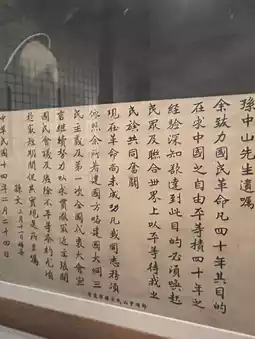 孫中山先生遺囑
余致力國民革命凡四十年其目的
在求中國之自由平等積四十年之
經驗深知欲達到此目的必須喚起
民眾及聯合世界上以平等待我之
民族共同奮鬥
現在革命尚未成功凡我同志務須
依照余所著建國方略建國大綱三
民主義及第一次全國代表大會宣
言繼續努力以求貫徹最近主張開
國民會議及廢除不平等條約尤須
於最短期間促其實現是所至囑
孫文 三月十一日補簽
中華民國十四年二月二十四日